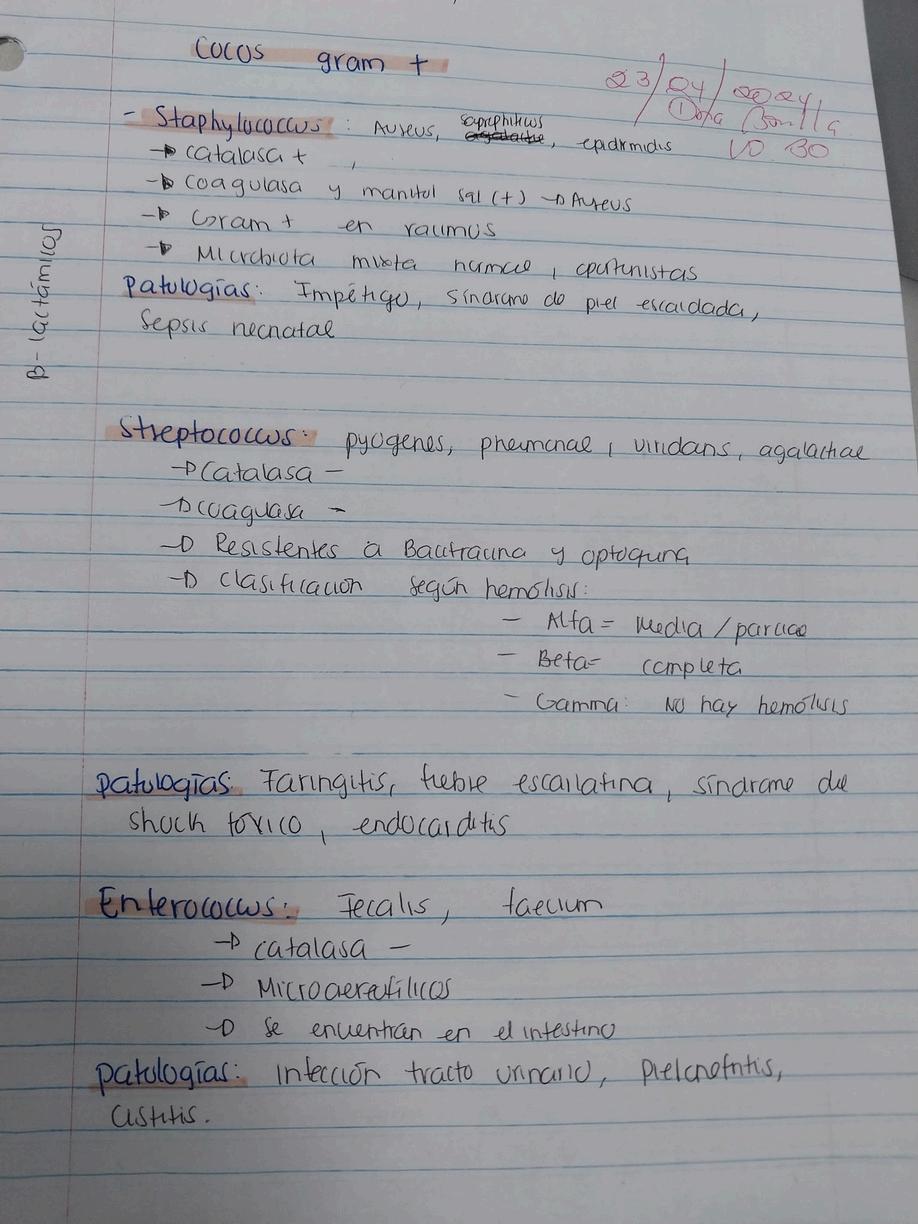 Cocos gram +
23/04/2024
- Staphylococcus: Aureus, saprophiticus, epidirmidis
→ catalasa +,
→ coagulasa y manitol sal (+) → Aureus
→ Gram + en racimos
→ Microbiota mixta normal, oportunistas
Patologías: Impétigo, síndrome de piel escaldada,
Sepsis neonatal
β-lactámicos
Streptococcus: pyogenes, pneumonae, viridans, agalactiae
→ Catalasa -
→ coagulasa -
→ Resistentes a Bacitracina y optoquina
→ Clasificacion según hemólisis:
- Alfa = Media / parcial
- Beta = completa
- Gamma: No hay hemólisis
Patologías: Faringitis, fiebre escarlatina, síndrome de
shock tóxico, endocarditis
Enterococcus: Fecalis, faecium
→ catalasa -
→ Microaereofílicos
→ se encuentran en el intestino
Patologías: infección tracto urinario, pielonefritis,
cistitis.